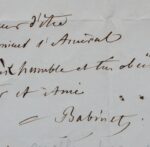 eur d'être
ment l'Amiral
humble et très obéi
et Ami
Babinet.